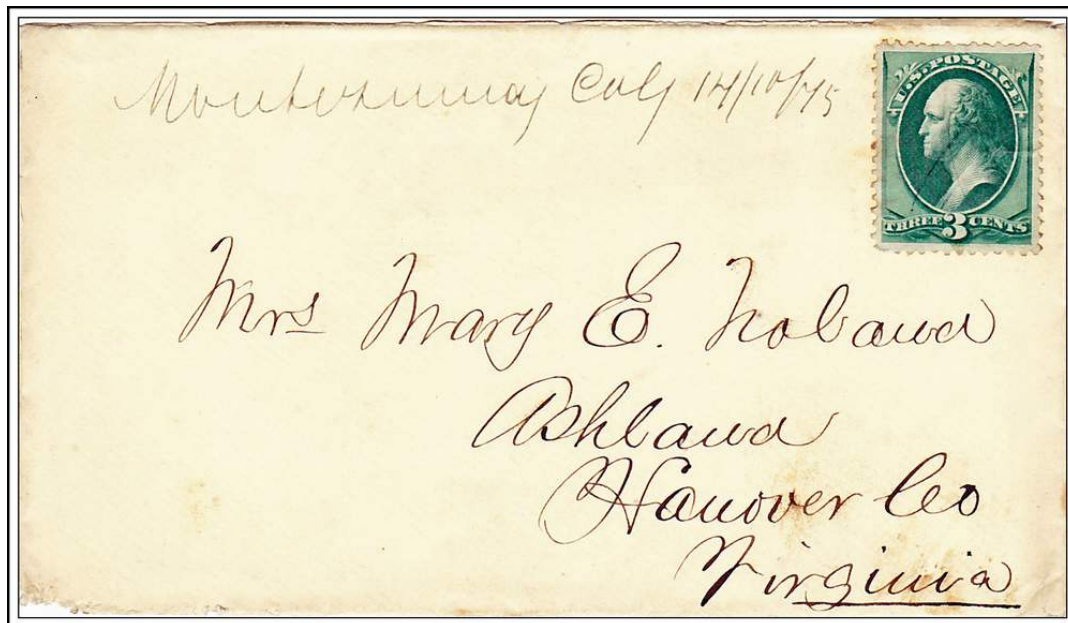 Montezuma Cal 14/10/75
U.S. POSTAGE
THREE 3 CENTS
Mrs Mary E. Noland
Ashland
Hanover Co
Virginia